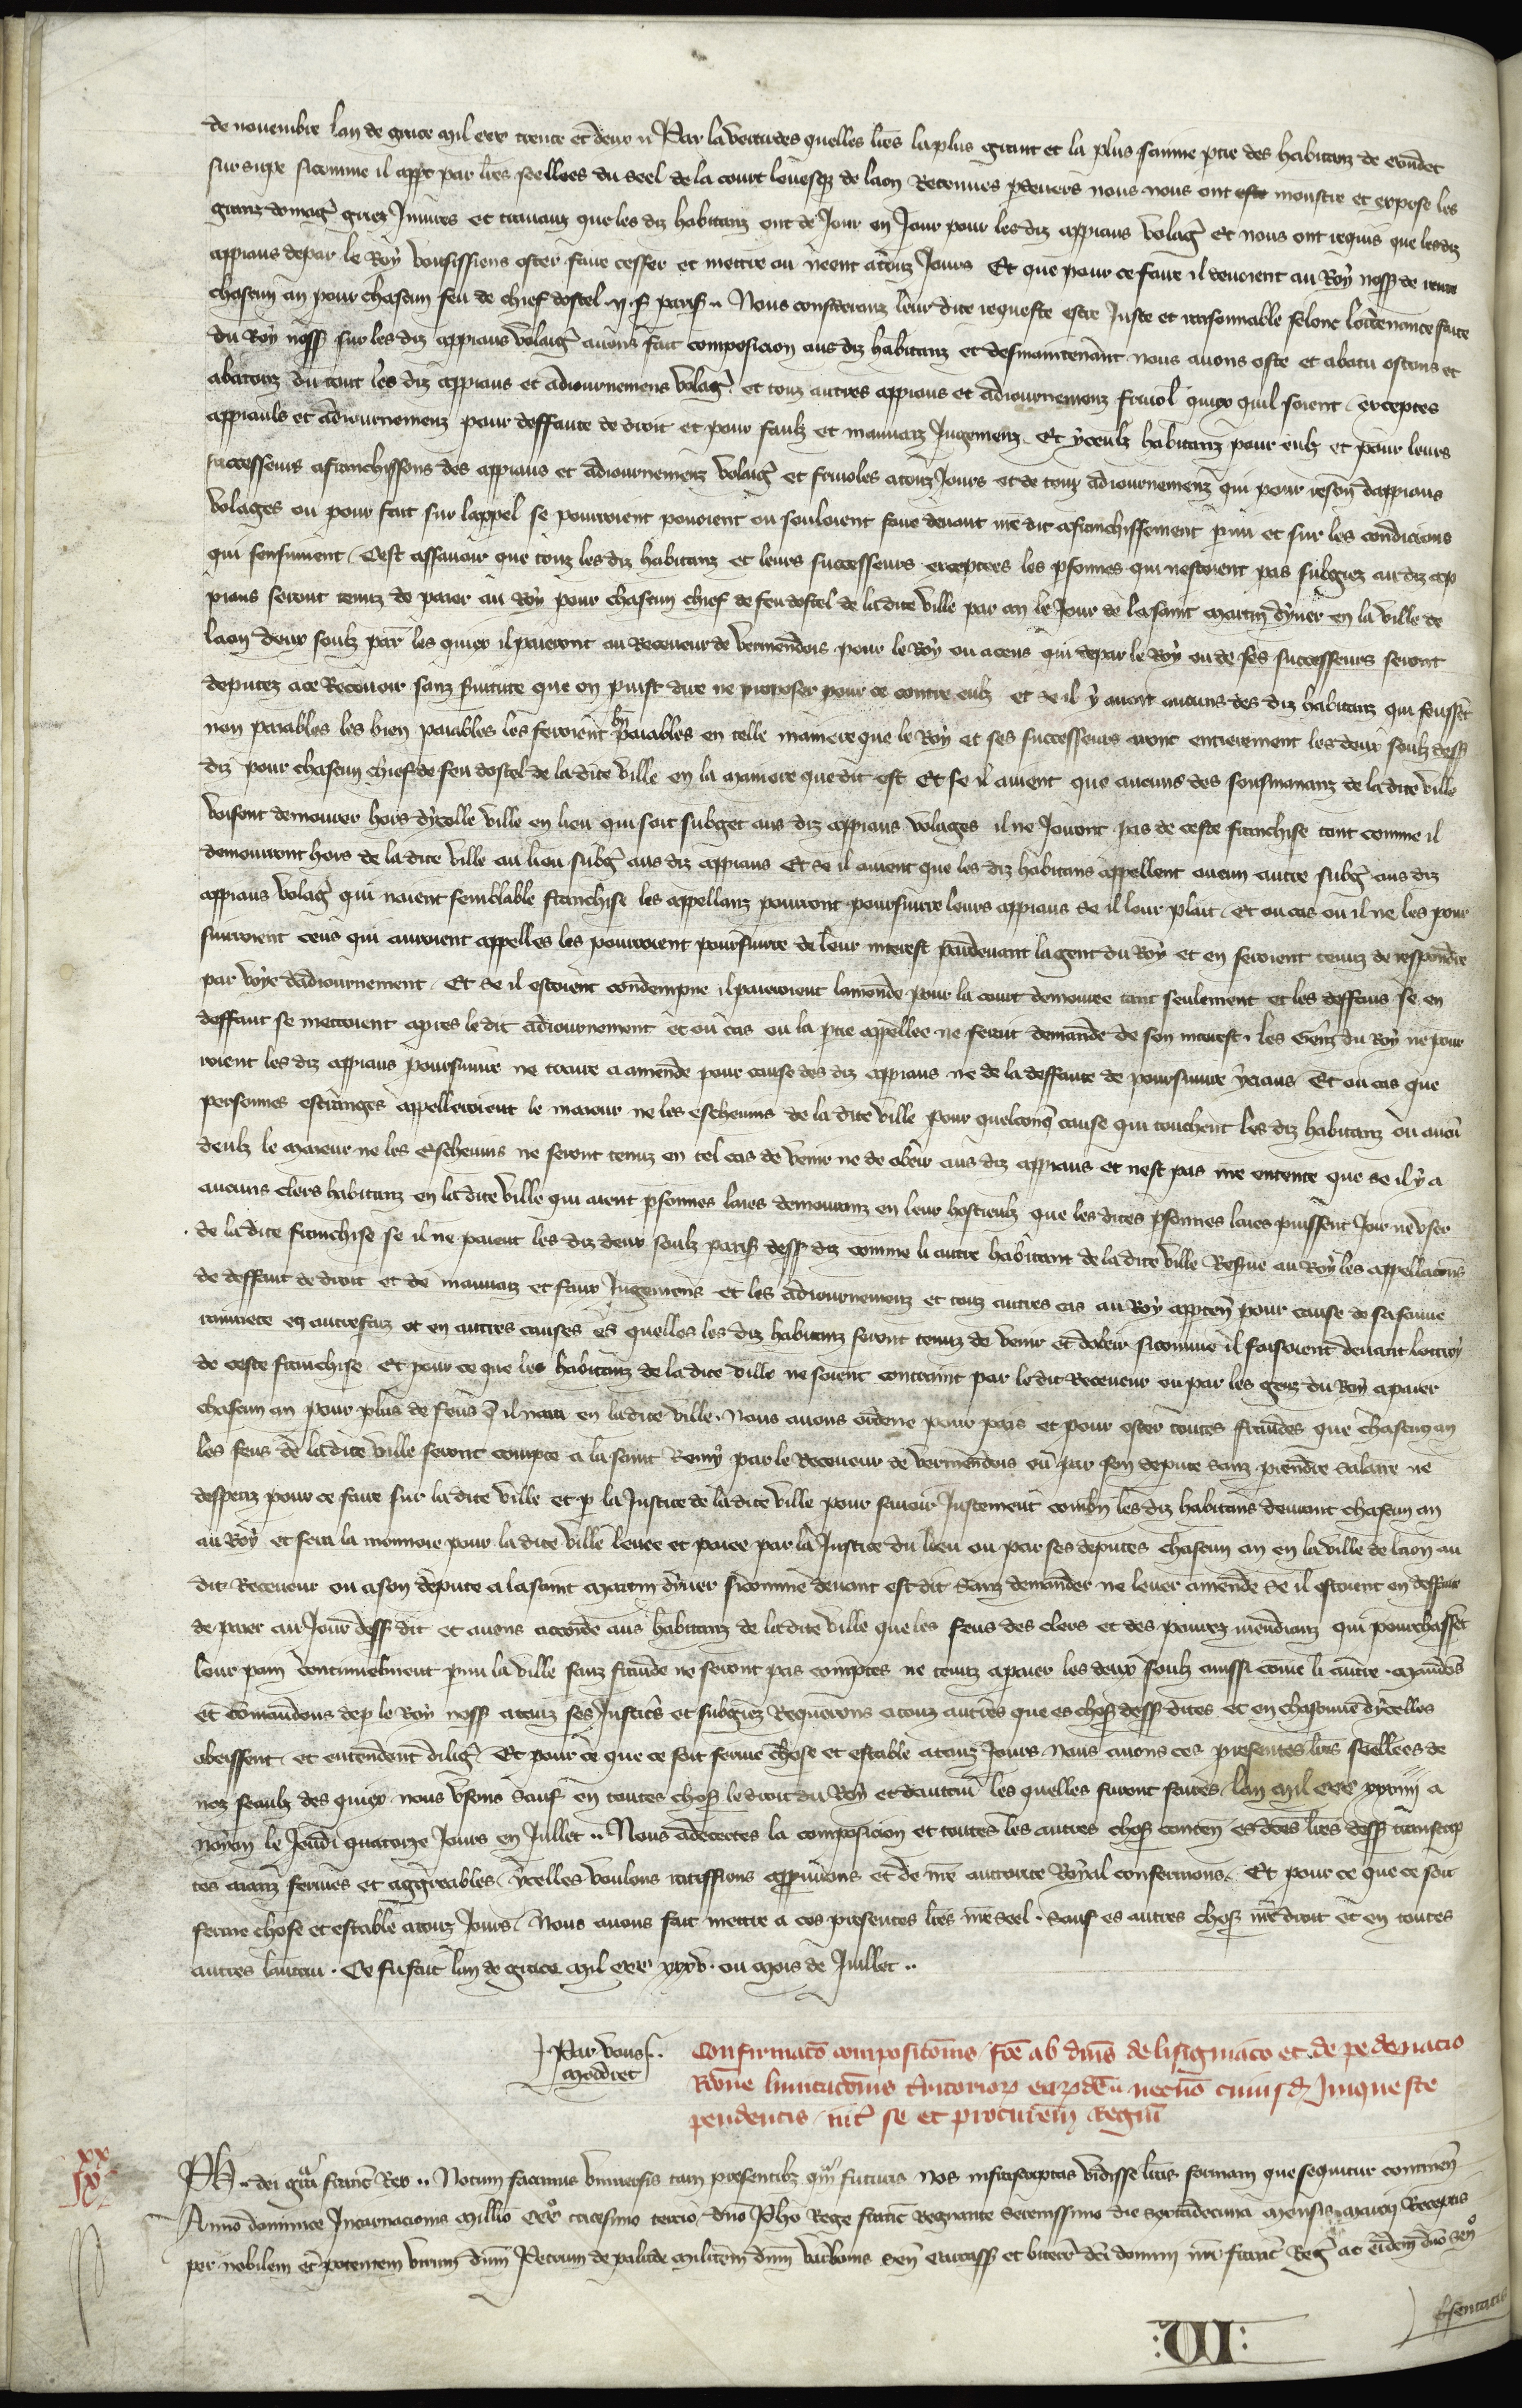 de novembre lan de grace mil ccc trente et deux ¶ Par la vertu des quelles lres la plus grant et la plus sainne ptie des habitanz de
sur sixe sicomme il appt par lres seellees du seel de la court levesq de laon Retenues pdevers nous nous ont monstre et expose les
granz domag griez Iniures et travauz que les diz habitanz ont de Jour en Jour pour les diz appiaus volag Et nous ont requis que lesdiz
appiaus depar le Roy vousissiens oster faire cesser et mettre au neent a touz Jours Et que pour ce faire il devroient au Roy noss de rente
chascun an pour chascun feu de chief dostel .ii. s paris. Nous consideranz leur dite requeste estre Juste et raisonnable selonc lordenance faite
du Roy noss sur les diz appiaus volaig avons fait composicion aus diz habitanz et desmaintenant nous avons oste et abatu ostons et
abatons du tout les diz appiaus et adiournemens volag et touz autres appiaus et adiournemenz frivol quiex quil soient exceptes
appiauls et adiournemenz pour deffaute de droit et pour faulz et mauvaiz Jugemenz. Et yceulz habitanz pour eulz et pour leurs
successeurs afranchissons des appiaus et adiournemenz volaig et frivoles a touz Jours et de touz adiournemenz qui pour reson dappiaus
volages ou pour fait sur lappel se pourroient povoient ou souloient faire devant nre dit afranchissement pmi et sur les condicions
qui sensuivent. Cest assavoir que touz les diz habitanz et leurs successeurs exceptees les psonnes qui nestoient pas subgiez aus diz ap
piaus seront tenuz de paier au Roy pour chascun chief de feu dostel de la dite ville par an le Jour de la saint martin dyver en la ville de
laon deux soulz par les quiex il paieront au Receveur de vermendois pour le Roy ou a ceus qui depar le Roy ou de ses successeurs seront
deputez a ce Recevoir sanz franture que on puist dire ne proposer pour ce contre eulz et se il y avoit aucuns des diz habitanz qui feussent
non paiables les bien paiables les feroient bn paiables en telle maniere que le Roy et ses successeurs aront entierement les deux soulz dess
diz pour chascun chief de feu dostel de la dite ville en la maniere que dit est Et se il avient que aucuns des sousmananz de la dite ville
voisent demourer hors dycelle ville en lieu qui soit subget aus diz appiaus volages il ne Joiront pas de ceste franchise tant comme il
demourront hors de la dite ville ou lieu subg aus diz appiaus Et se il avient que les diz habitans appellent aucun autre subg aus diz
appiaus volag qui naient semblable franchise les appellanz pourront poursuivre leurs appiaus se il leur plaist. Et ou cas ou il ne les pour
suivroient ceus qui auroient appelles les pourroient poursuivre de leur interest pardevant la gent du Roy et en seroient tenuz de respondre
par voye dadiournement. Et se il estoient condempne il paieroient lamende pour la court demouree tant seulement et les deffaus se en
deffaut se mettoient apres le dit adiournement et ou cas ou la ptie appellee ne feroit demande de son interest les Genz du Roy ne pour
roient les diz appiaus poursuivre ne traire a amende pour cause des diz appiaus ne de la deffaute de poursuivre yceaus Et ou cas que
personnes estranges appelleroient le maieur ne les eschevins de la dite ville pour quelconq cause qui touchent les diz habitanz ou aucu
deulz le maieur ne les Eschevins ne seront tenuz en tel cas de venir ne de obeir aus diz appiaus et nest pas nre entente que se il y a
aucuns clers habitanz en la dite ville qui aient psonnes laies demouranz en leur hostieulz que les dites psonnes laies puissent Joir ne user
de la dite franchise se il ne paient les diz deux soulz paris dess diz comme li autre habitant de la dite ville Reserve au Roy les appellacons
de deffaut de droit et de mauvaiz et faux Jugemens et les adiournemenz et touz autres cas au Roy appten pour cause de sa souve
rainnete en autres faiz et en autres causes es quelles les diz habitanz seront tenuz de venir et dobeir sicomme il faisoient devant lottroy
de ceste franchise Et pour ce que les habitanz de la dite ville ne soient contraint par le dit Receveur ou par les genz du Roy a paier
chascun an pour plus de feus q il naura en la dite ville. Nous avons ordene pour pais et pour oster toutes fraudes que chascun an
les feus de la dite ville seront compte a la saint Remy par le Receveur de vermendois ou par son depute sanz prendre salaire ne
despens pour ce faire sur la dite ville et p la Justice de la dite ville pour savoir Justement combn les diz habitans devront chascun an
au Roy et sera la monnoie pour la dite ville levee et paiee par la Justice du lieu ou par ses deputes chascun an en la ville de laon au
dit Receveur ou a son depute a la saint martin dyver sicomme devant est dit sanz demander ne lever amende se il estoient en deffaut
de paier au Jour dess dit et avons accorde aus habitanz de la dite ville que les feus des clers et des povres mendianz qui pourchassent
leur pain continuelment pmi la ville sanz fraude ne seront pas comptes ne tenuz a paier les deux soulz aussi come li autre. Mandons
et comandons dep le Roy noss a touz ses Justic et subgiez Requerons a touz autres que es chos dess dites et en chascune dycelles
obeissent et entendent dilig Et pour ce que ce soit ferme chose et estable a touz Jours Nous avons ces presentes lres seellees de
noz seaulz des quiex nous usons sauf en toutes chos le droit du Roy et dautrui les quelles furent faites lan mil ccc xxxiiii a
noyon le Jeudi quatorze Jours en Juillet .. Nous adecertes la composicion et toutes les autres chos conten es dces lres dess transcrip
tes aianz fermes et aggreables ycelles voulons ratiffions approuvons et de nre auctorite Royal confermons. Et pour ce que ce soit
ferme chose et estable a touz Jours. Nous avons fait mettre a ces presentes lres nre seel. Sauf es autres chos nre droit et en toutes
autres lautrui. Ce fu fait lan de grace mil ccc xxxv. ou mois de Juillet ..
Par vous ..
Moddret
Confirmaco composiconis fce ab dnis de lisigniaco et de pedenacio
Rone limitaconis tritorior eardem necno cuiusd Inqueste
pendentis int se et procurem Regiu
xx
ix
Ph .. dei gra franc Rex .. Notum facimus universis tam presentibz qm futuris Nos infrascriptas vidisse lras formam que sequitur continen
Anno dominice Incarnacionis millio ccco tricesimo tercio dno Pho Rege franc Regnante Serenissimo die septadecima mensis marcii Receptis
per nobilem et potentem virum dnm Petrum de palude militem dnm varbonis sen carcass et bitter dci domini nri franc Reg ac eidem dno sen
psentatis
: VI :